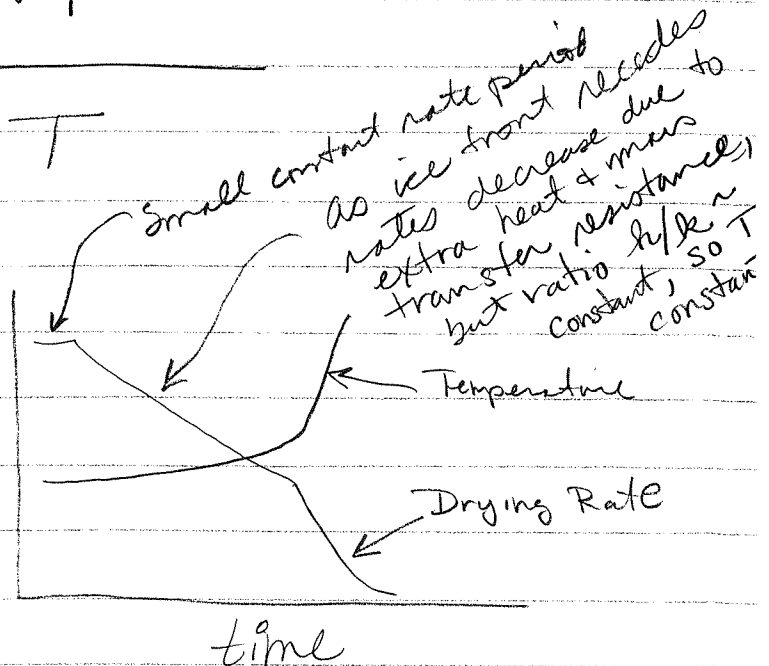 T
Small constant rate period
as ice front recedes
rates decrease due to
extra heat & mass
transfer resistance,
but ratio h/k ~
constant, so T
constan
Temperature
Drying Rate
time